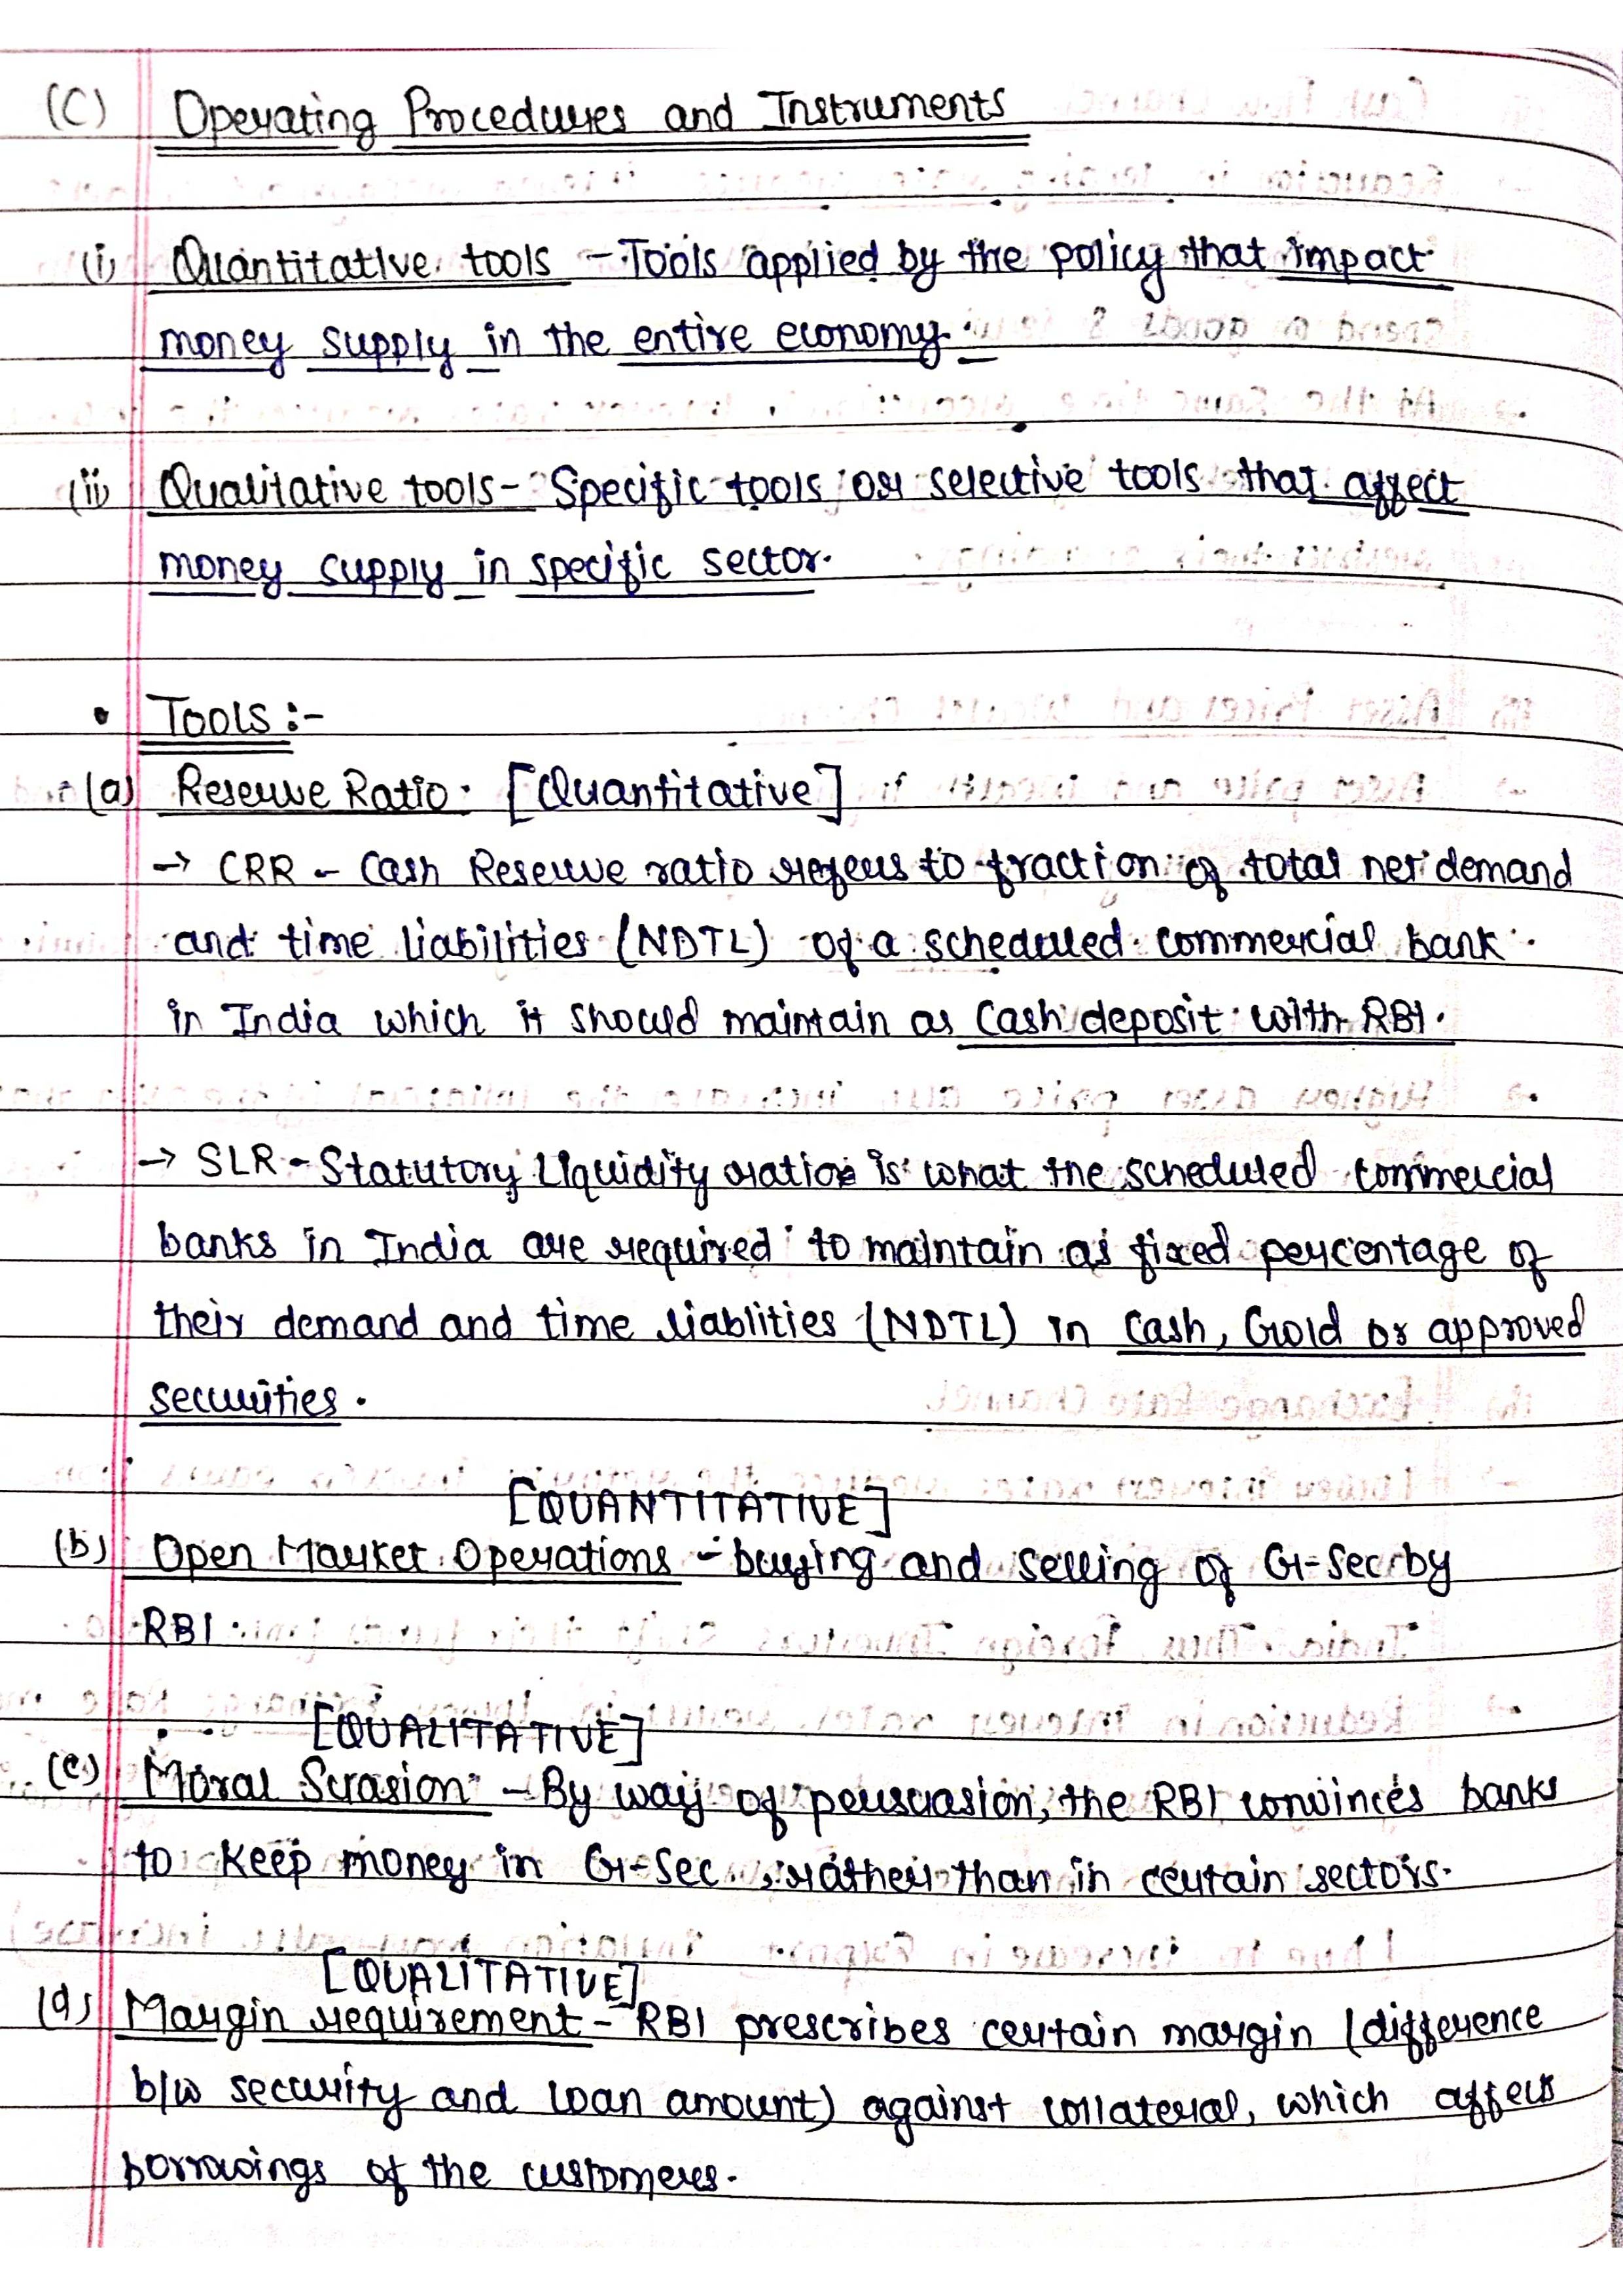 (C) Operating Procedures and Instruments
(i) Quantitative tools - Tools applied by the policy that impact
money supply in the entire economy.
(ii) Qualitative tools - Specific tools or selective tools that affect
money supply in specific sector.
• Tools :-
(a) Reserve Ratio. [Quantitative]
→ CRR - Cash Reserve ratio refers to fraction of total net demand
and time liabilities (NDTL) of a scheduled commercial bank
in India which it should maintain as cash deposit with RBI.
→ SLR - Statutory Liquidity ratio is what the scheduled commercial
banks in India are required to maintain as fixed percentage of
their demand and time liablities (NDTL) in cash, Gold or approved
securities.
[QUANTITATIVE]
(b) Open Market Operations - buying and selling of G-Sec by
RBI.
[QUALITATIVE]
(c) Moral Suasion - By way of persuasion, the RBI convinces banks
to keep money in G-Sec., rather than in certain sectors.
[QUALITATIVE]
(d) Margin requirement - RBI prescribes certain margin (difference
b/w security and loan amount) against collateral, which affects
borrowings of the customers.